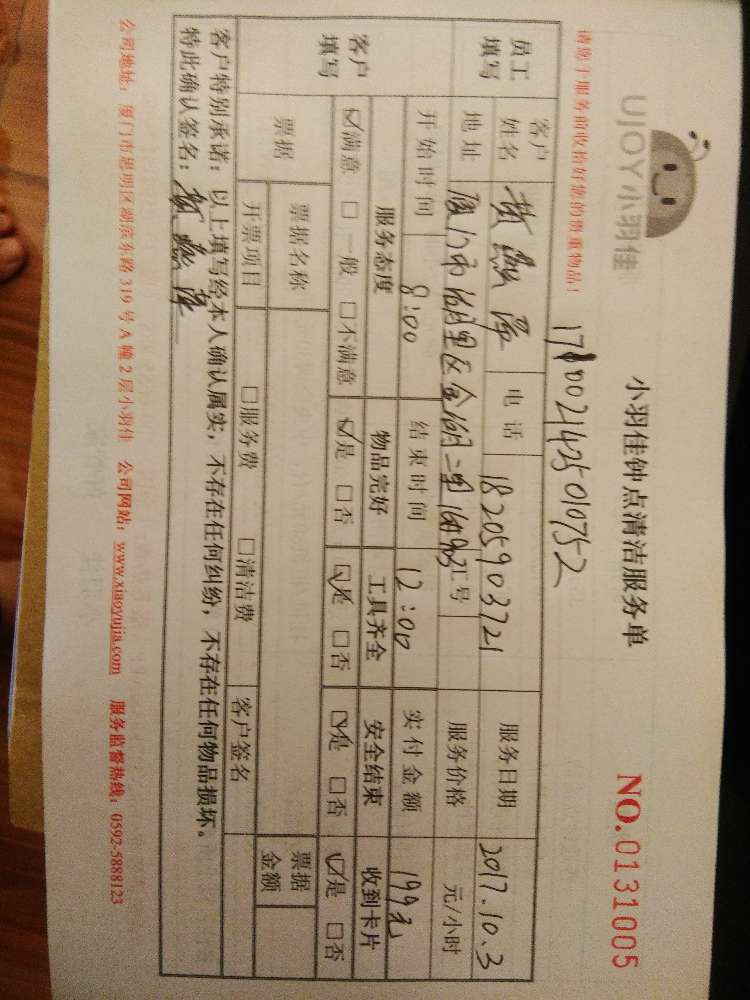 UJOY小羽佳
小羽佳钟点清洁服务单
NO.0131005
请您于服务前收拾好您的贵重物品！
171002142501075 2
员工填写
客户姓名 黄 电话 18205903721 服务日期 2017.10.3
地址 厦门市湖里区金湖二里 号 服务价格 元/小时
开始时间 8:00 结束时间 12:00 实付金额 199元
客户填写
服务态度 物品完好 工具齐全 安全结束 收到卡片
☑满意 □一般 □不满意 ☑是 □否 ☑是 □否 ☑是 □否 ☑是 □否
票据 票据名称 票据金额
开票项目 □服务费 □清洁费 客户签名
客户特别承诺：以上填写经本人确认属实，不存在任何纠纷，不存在任何物品损坏。
特此确认签名：黄
公司地址：厦门市思明区湖滨东路319号A幢2层小羽佳 公司网站：www.xiaoyujia.com 服务监督热线：0592-5888123